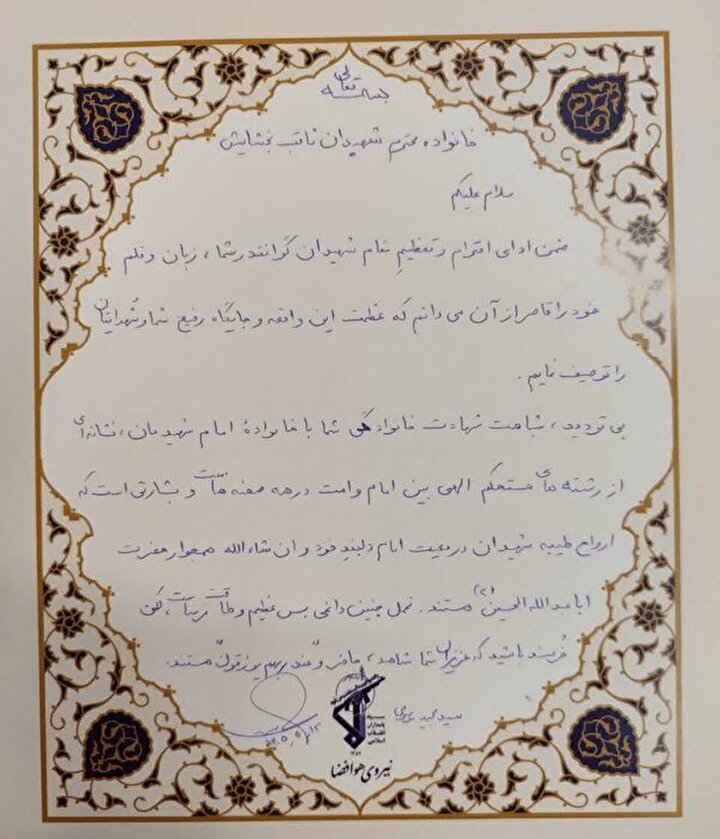 بسمه تعالی
خانواده محترم شهیدان ثاقب بخشایش
سلام علیکم
ضمن ادای احترام و تعظیم مقام شهیدان گرانقدر شما، زبان و قلم
خود را قاصر از آن می دانم که عظمت این واقعه و جایگاه رفیع شما و شهدایتان
را توصیف نمایم.
بی تردید، شباهت شهادت خانوادگی شما با خانوادهٔ امام شهیدمان، نشانه‌ای
از رشته های مستحکم الهی بین امام و امت در همه صحنه هاست و بشارتی است که
ارواح طیبه شهیدان در معیت امام دلبند خود و ان شاء الله همجوار حضرت
اباعبدالله الحسین (ع) هستند. تحمل چنین داغی بس عظیم و طاقت فرساست، لکن
خُرسند باشید که عزیزان شما شاهد، حاضر و "عند ربهم یرزقون" هستند.
سید مجید موسوی
سپاه پاسداران انقلاب اسلامی
نیروی هوافضا